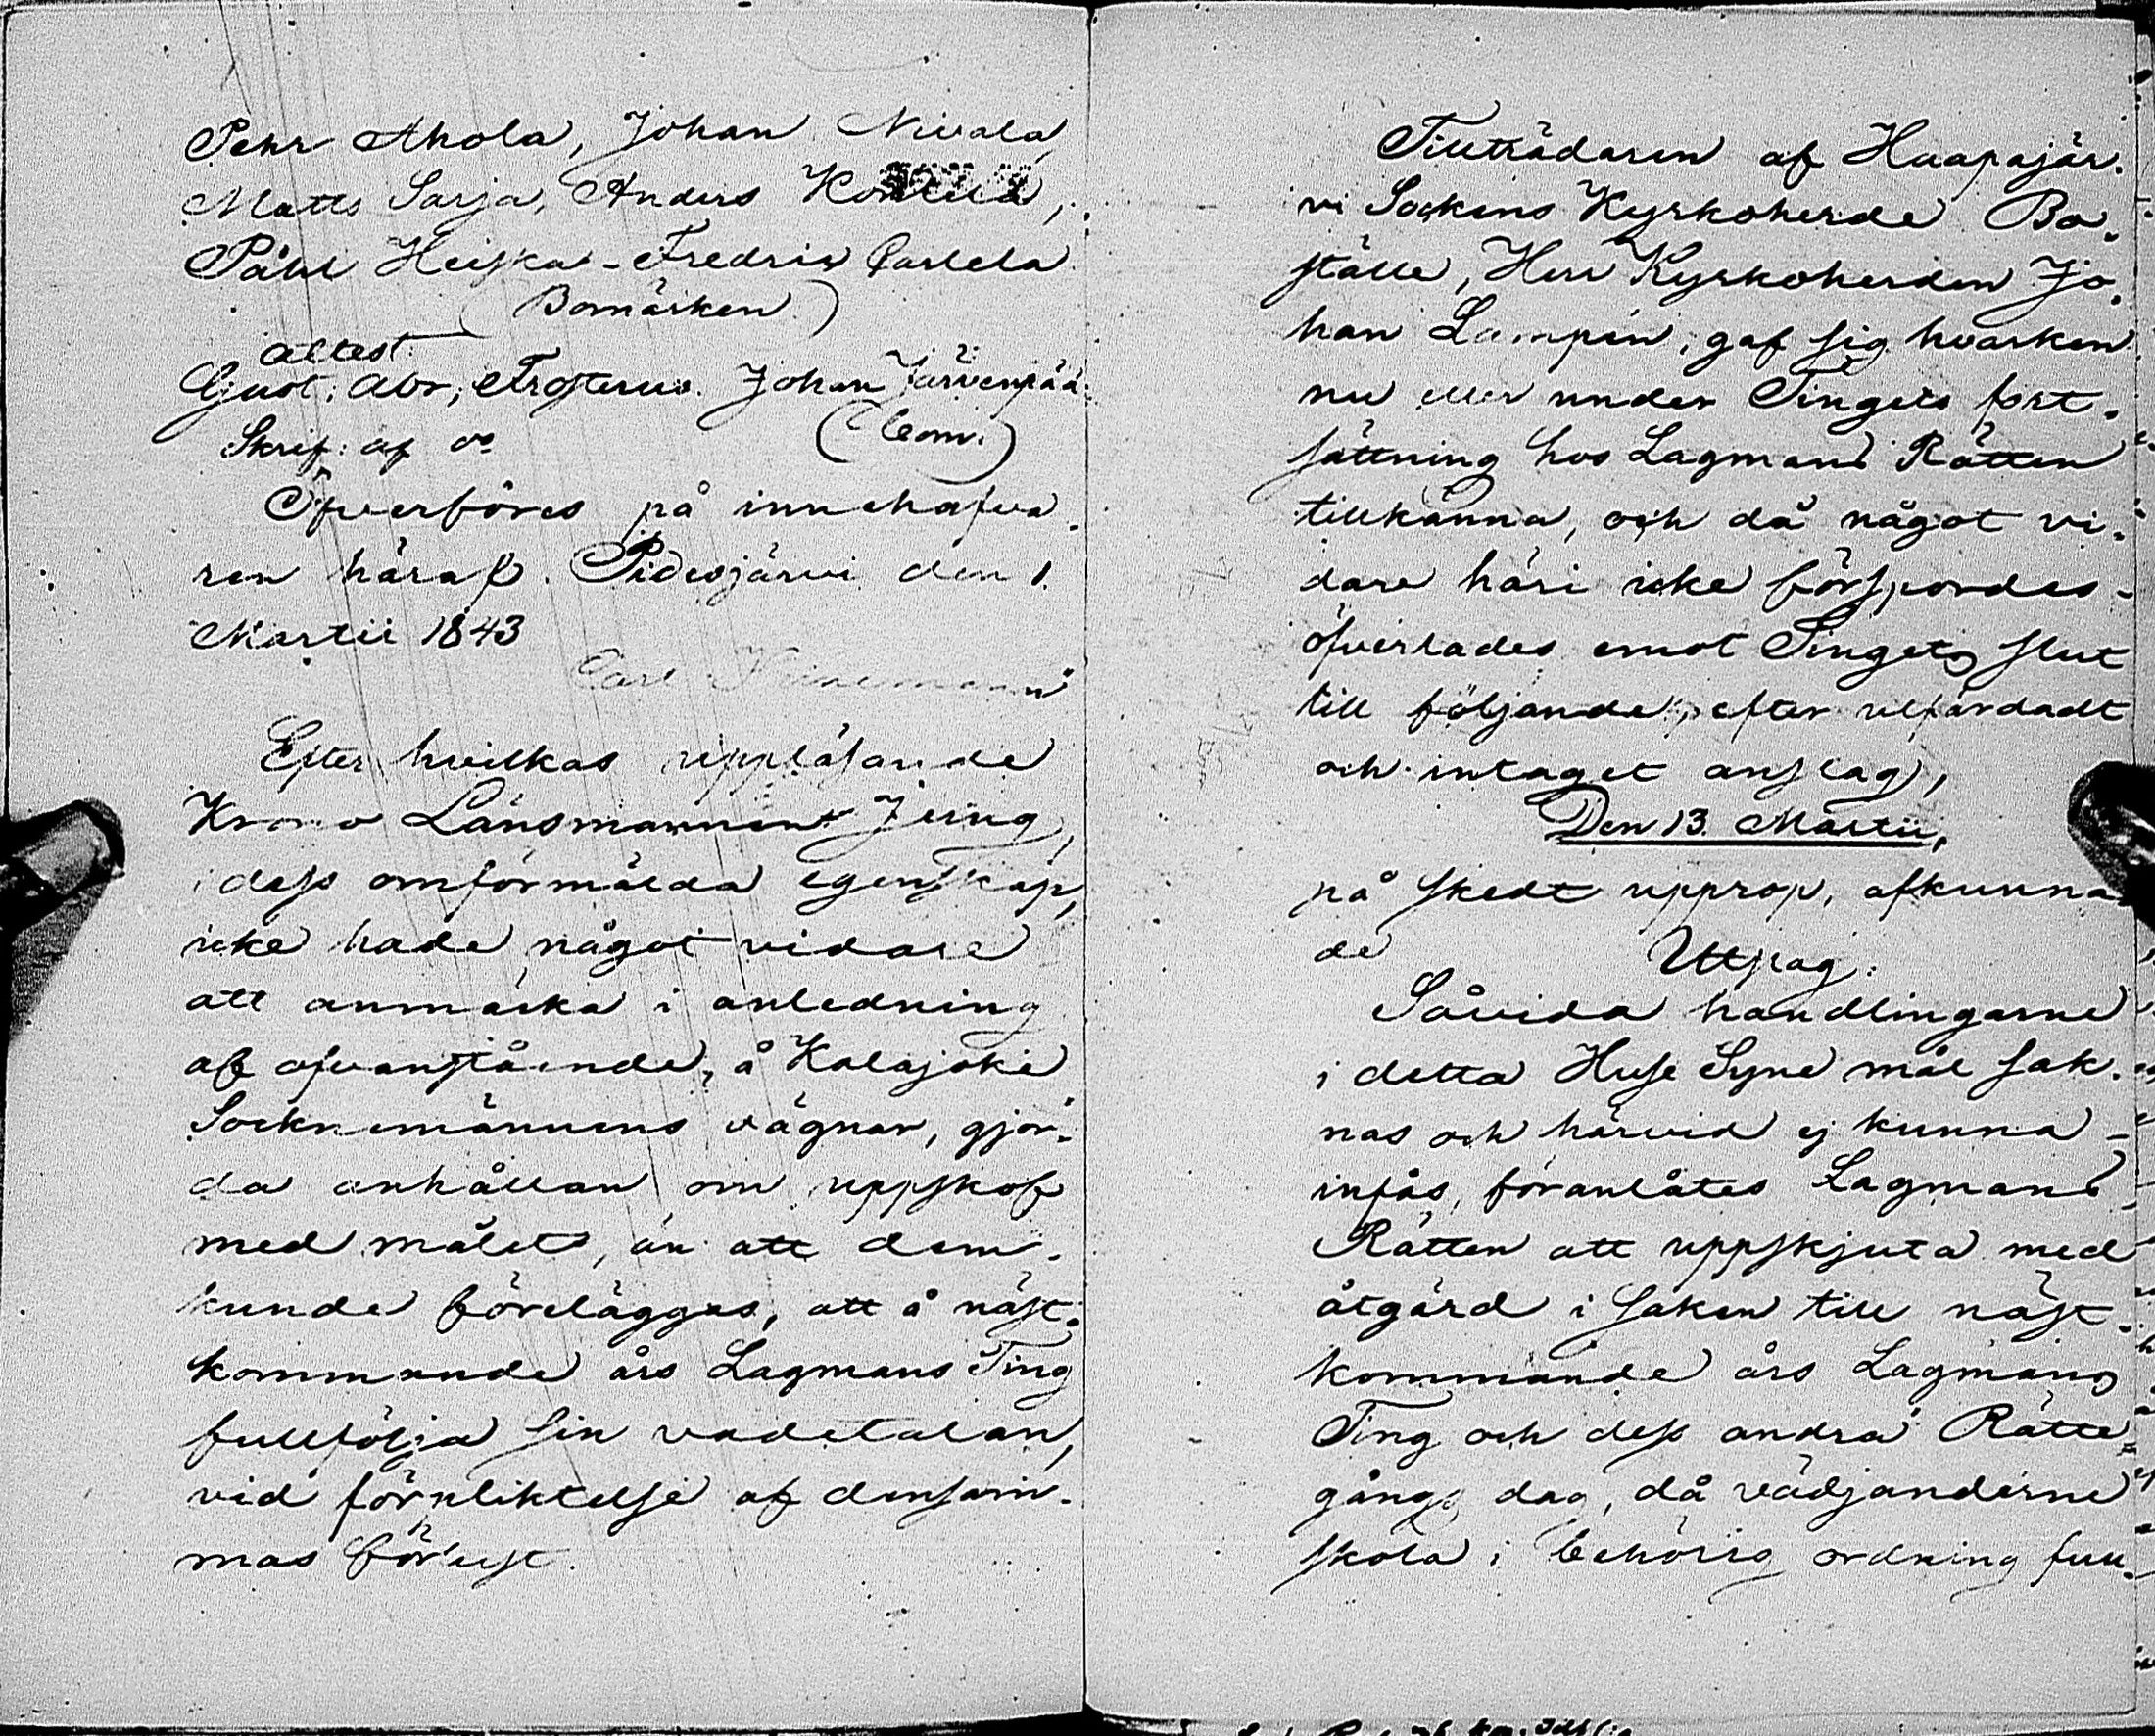 Pehr Ahola, Johan Nivala,
Matts Sarja, Anders
Påhl Heiska - Fredric Parlela
(Bomärken)
attest:
Gust: Abr; Frosterus. Johan Järvenpää
Skrif: af
(Com:)
Öfverföres på innehafva.
ren häraf. Pidesjärvi den 1.
Martii 1843
Carl
Efter hvilkas uppläsande
Krono Länsmannen Jeing,
i dess omförmälda egenskap,
icke hade något vidare
att anmärka i anledning
af ofvanstående, å Kalajoki
Socknemännens vägnar, gjor-
da anhållan om uppskof
med målet, än att dem.
kunde föreläggas, att å näst.
kommande års Lagmans Ting
fullfölja sin vadetalan,
vid förpliktelse af densam-
mas förlust.
Tillträdaren af Haapajär.
vi Sockens Kyrkoherde Bo.
ställe, Herr Kyrkoherden Jo.
han Lampén, gaf sig hvarken
nu eller under Tingets fort.
sättning hos Lagmans Rätten
tillkänna, och då något vi.
dare häri icke förspordes -
öfverlades emot Tingets slut
till följande, efter utfärdadt
och intaget anslag,
Den 13. Martii,
på skedt upprop, afkunna
de Utslag:
Såvida handlingarne
i detta Huse Syne mål sak.
nas och härvid ej kunna -
infås, föranlåtes Lagmans
Rätten att uppskjuta med
åtgärd i saken till näst.
kommande års Lagmans
Ting och dess andra Rätte=
gångs dag, då vädjanderne
skola i behörig ordning full.